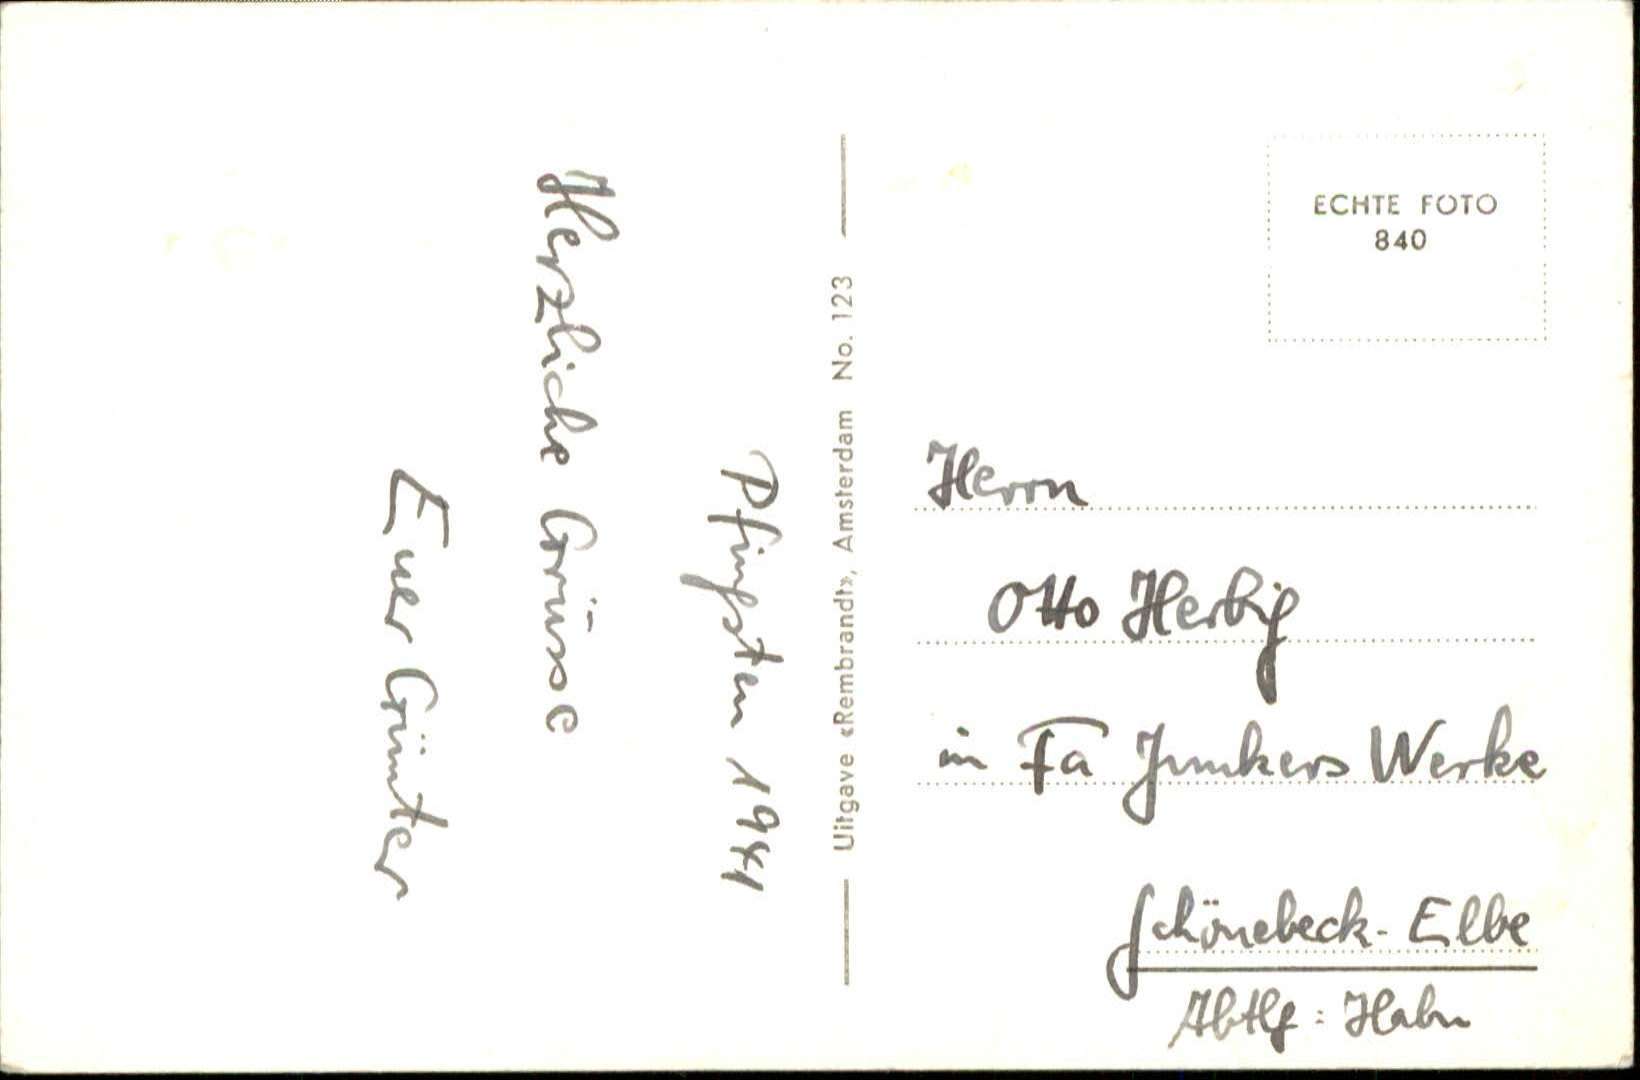 Pfingsten 1941
Herzliche Grüsse
Euer Günter
Uitgave «Rembrandt», Amsterdam No. 123
ECHTE FOTO
840
Herrn
Otto Herbig
in Fa Junkers Werke
Schönebeck - Elbe
Abtlg : Hahn